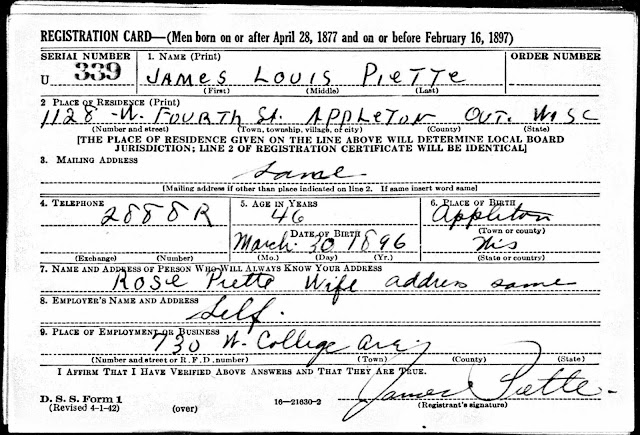 REGISTRATION CARD—(Men born on or after April 28, 1877 and on or before February 16, 1897)
SERIAL NUMBER 1. NAME (Print) ORDER NUMBER
U 339 JAMES LOUIS PIETTE
(First) (Middle) (Last)
2 PLACE OF RESIDENCE (Print)
1128 -W. FOURTH St. APPLETON OUT. WISC
(Number and street) (Town, township, village, or city) (County) (State)
[THE PLACE OF RESIDENCE GIVEN ON THE LINE ABOVE WILL DETERMINE LOCAL BOARD
JURISDICTION; LINE 2 OF REGISTRATION CERTIFICATE WILL BE IDENTICAL]
3. MAILING ADDRESS
Same
[Mailing address if other than place indicated on line 2. If same insert word same]
4. TELEPHONE 5. AGE IN YEARS 6. PLACE OF BIRTH
2888R 46 Appleton
DATE OF BIRTH (Town or county)
March. 30 1896 Wis
(Exchange) (Number) (Mo.) (Day) (Yr.) (State or country)
7. NAME AND ADDRESS OF PERSON WHO WILL ALWAYS KNOW YOUR ADDRESS
Rose Piette Wife address same
8. EMPLOYER'S NAME AND ADDRESS
Self.
9. PLACE OF EMPLOYMENT OR BUSINESS
730 W. College Ave
(Number and street or R. F. D. number) (Town) (County) (State)
I AFFIRM THAT I HAVE VERIFIED ABOVE ANSWERS AND THAT THEY ARE TRUE.
James Piette
D. S. S. Form 1
(Revised 4-1-42) (over) 16—21630-2 (Registrant's signature)